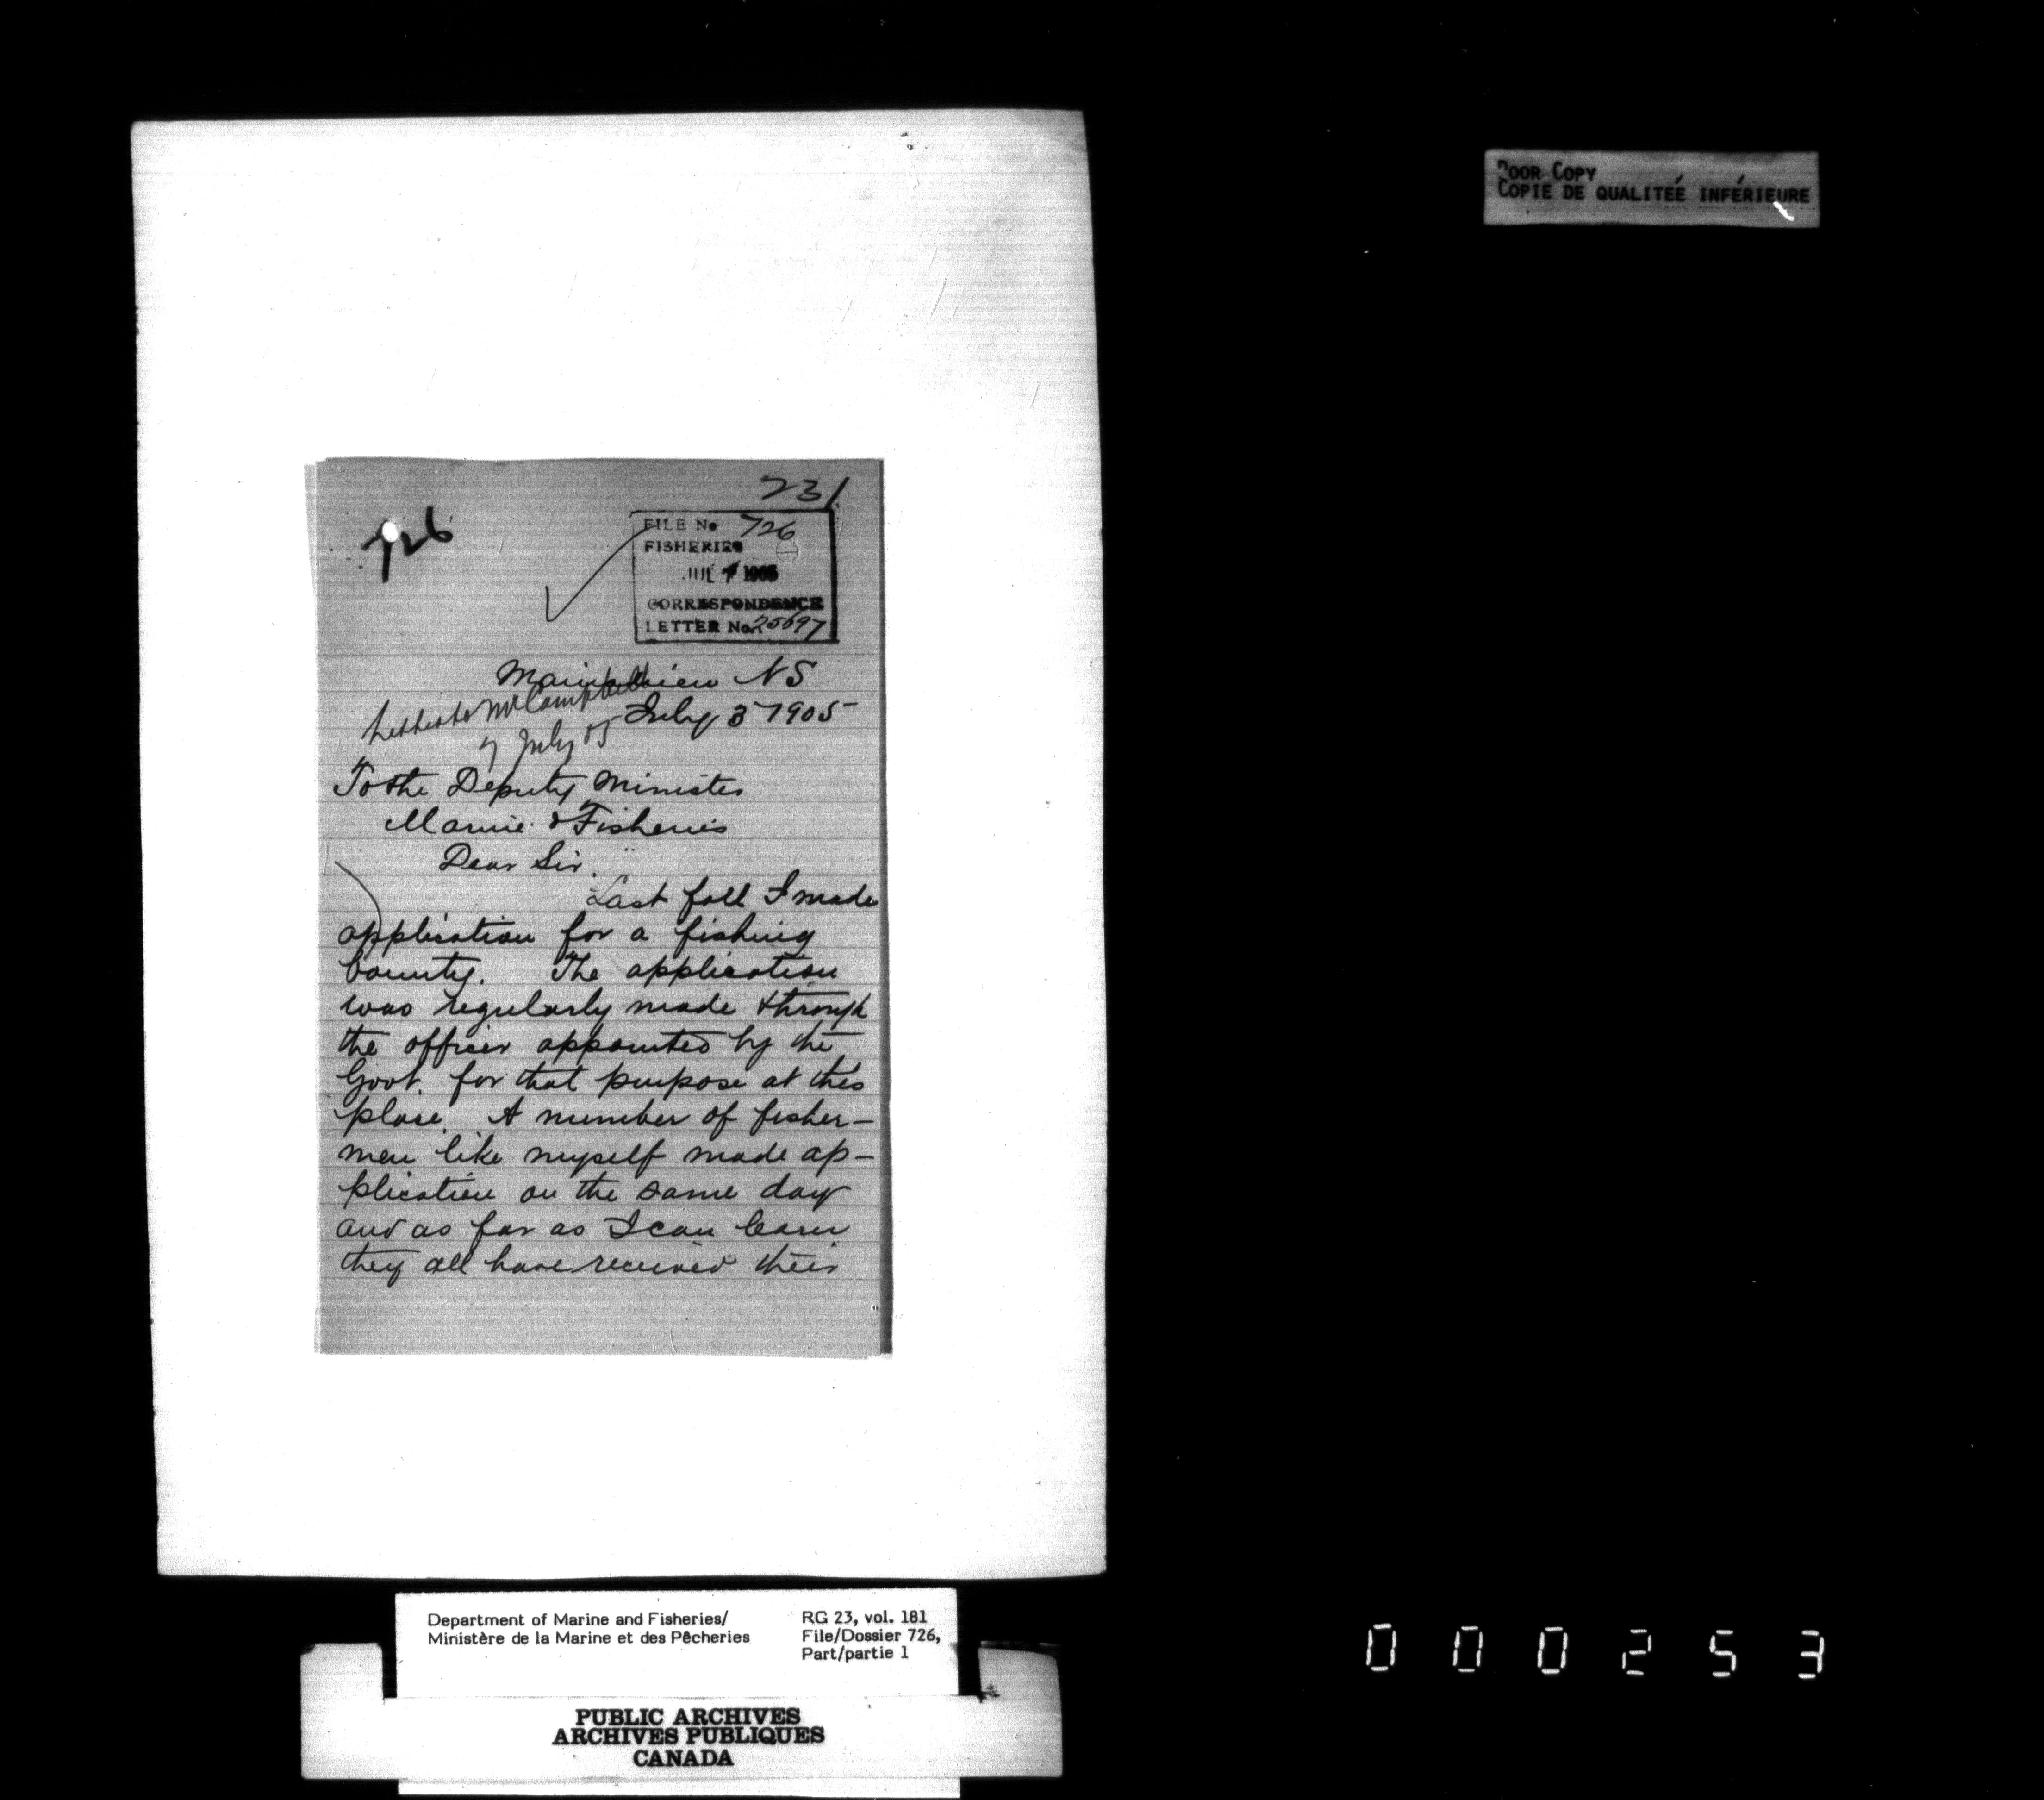 POOR COPY
COPIE DE QUALITEÉ INFÉRIEURE
231
726
FILE No 726
FISHERIES
JUL 7 1905
CORRESPONDENCE
LETTER No. 25697
NS
July 3 1905
Letter to Mr Campbell
7 July 05
To the Deputy Minister
Marine & Fisheries
Dear Sir.
Last fall I made
application for a fishing
bounty. The application
was regularly made through
the officer appointed by the
Govt. for that purpose at this
place. A number of fisher-
men like myself made ap-
plication on the same day
and as far as I can learn
they all have received their
Department of Marine and Fisheries/
Ministère de la Marine et des Pêcheries
RG 23, vol. 181
File/Dossier 726,
Part/partie 1
PUBLIC ARCHIVES
ARCHIVES PUBLIQUES
CANADA
000253